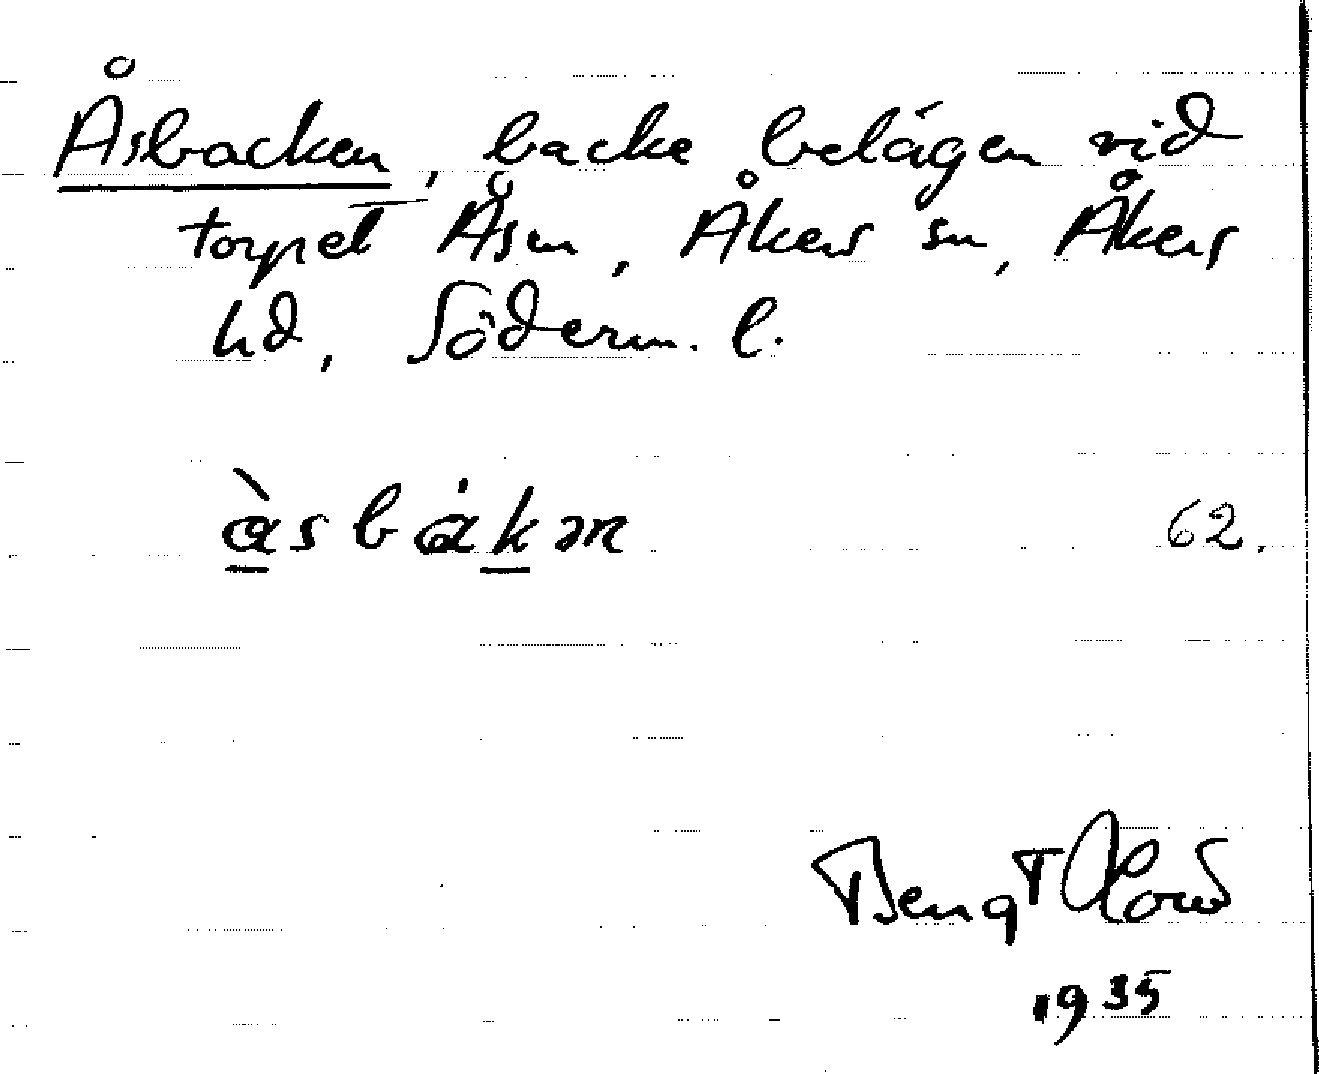 Åsbacken, backe belägen vid
torpet Åsen, Åkers sn, Åkers
hd, Söderm. l.
àsbákən 62.
Bengt
1935